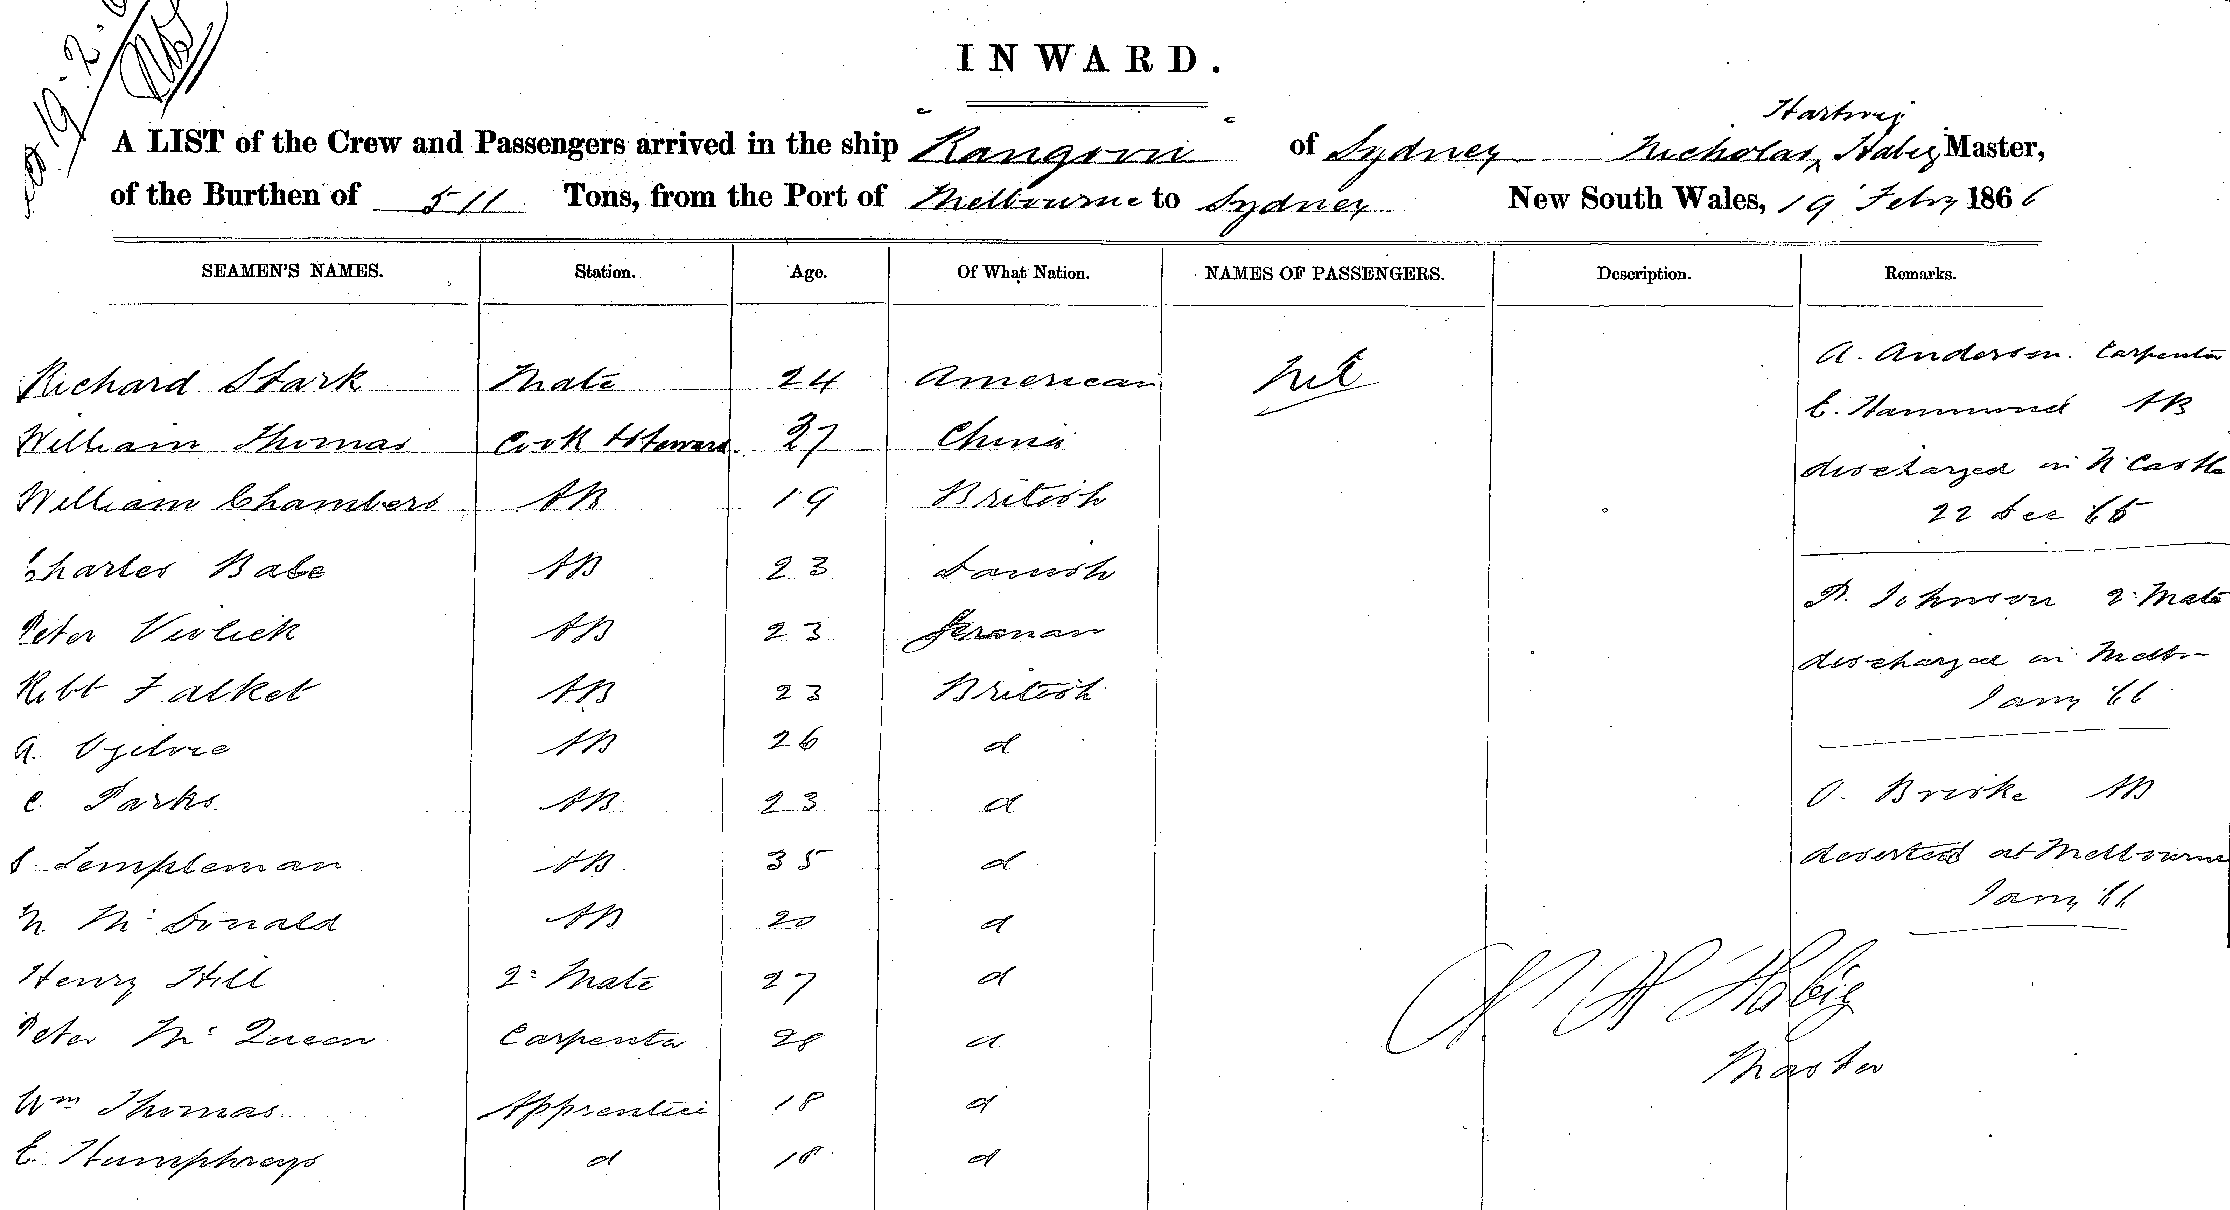 19 . 2 .
INWARD.
Hartwig
A LIST of the Crew and Passengers arrived in the ship Rangoon of Sydney Nicholas Habig Master,
of the Burthen of 511 Tons, from the Port of Melbourne to Sydney New South Wales, 19 Feby 1866
SEAMEN'S NAMES. Station. Age. Of What Nation. NAMES OF PASSENGERS. Description. Remarks.
Richard Stark Mate 24 American Nil
William Thomas Cook & Steward 27 China
William Chambers AB 19 British
Charles Babe AB 23 Danish
Peter Violick AB 23 German
Robt Falket AB 23 British
A. Ogilvie AB 26 d
C. Parks AB 23 d
S Templeman AB 35 d
N McDonald AB 20 d
Henry Hill 2d Mate 27 d
Peter McQueen Carpenter 28 d
Wm Thomas Apprentice 18 d
E. Humphreys d 18 d
A. Anderson Carpenter
E. Hammond AB
discharged in NCastle
22 Dec 65
P. Johnson 2d Mate
discharged in Melb
Jany 66
O. Briske AB
deserted at Melbourne
Jany 66
N H Habig
Master